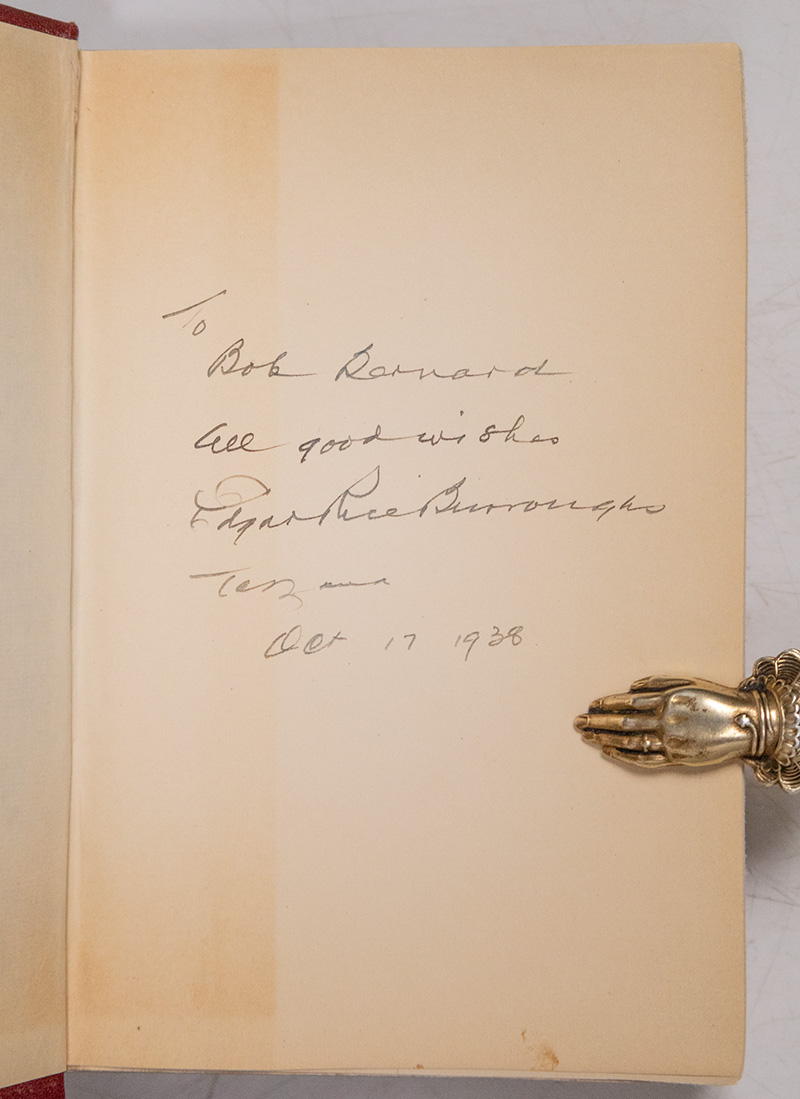 To
Bob Bernard
All good wishes
Edgar Rice Burroughs
Tarzana
Oct 17 1938